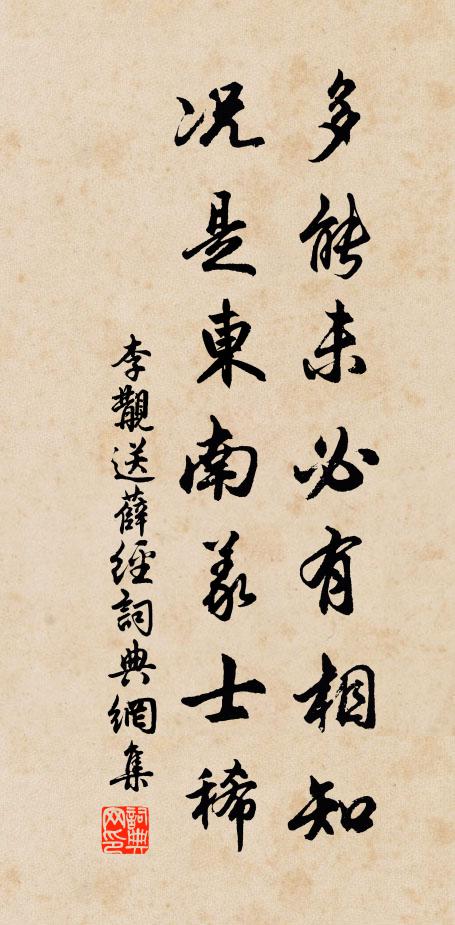 多能未必有相知
况是東南義士稀
李覯送薛經詞典網集
詞典
网印